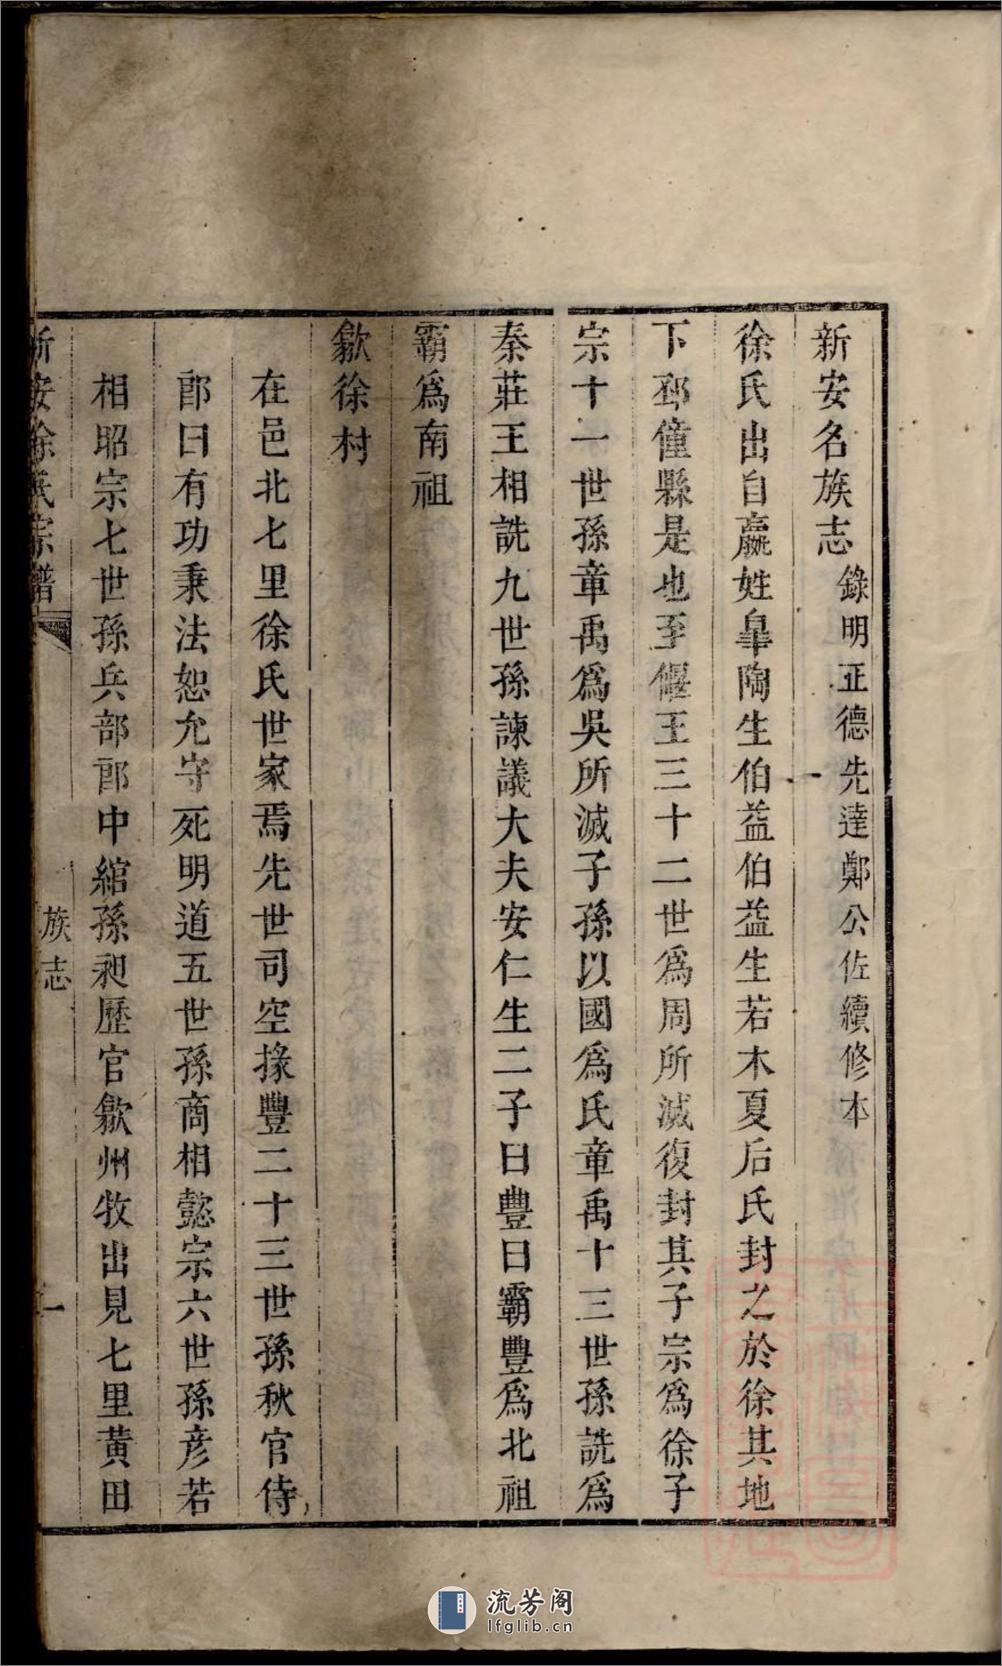 新安名族志 錄明正德先達鄭公佐續修本
徐氏出自嬴姓皐陶生伯益伯益生若木夏后氏封之於徐其地
下邳僮縣是也至偃王三十二世爲周所滅復封其子宗爲徐子
宗十一世孫章禹爲吳所滅子孫以國爲氏章禹十三世孫詵爲
秦莊王相詵九世孫諫議大夫安仁生二子曰豐曰霸豐爲北祖
霸爲南祖
歙徐村
在邑北七里徐氏世家焉先世司空掾豐二十三世孫秋官侍
郎曰有功秉法恕允守死明道五世孫商相懿宗六世孫彥若
相昭宗七世孫兵部郎中綰孫昶歷官歙州牧出見七里黄田
新安徐氏宗譜
族志
一
流芳阁
lfglib.cn